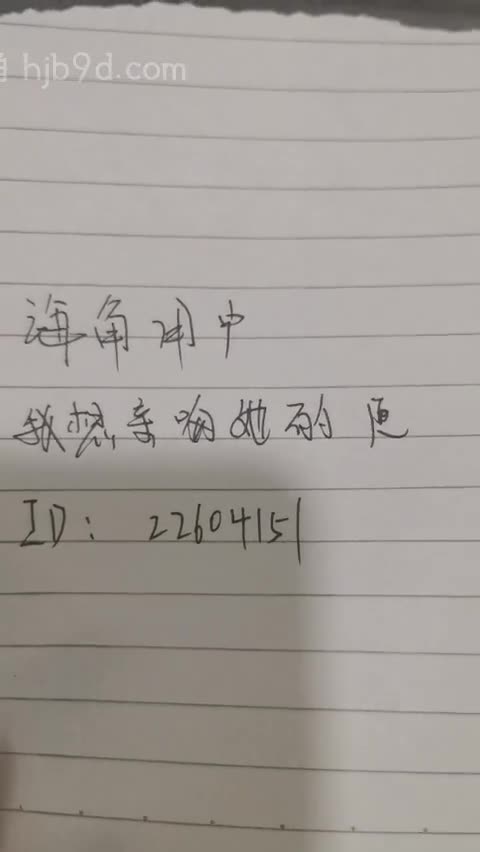 hjb9d.com
海角用中
我想亲吻她的
ID: 22604151